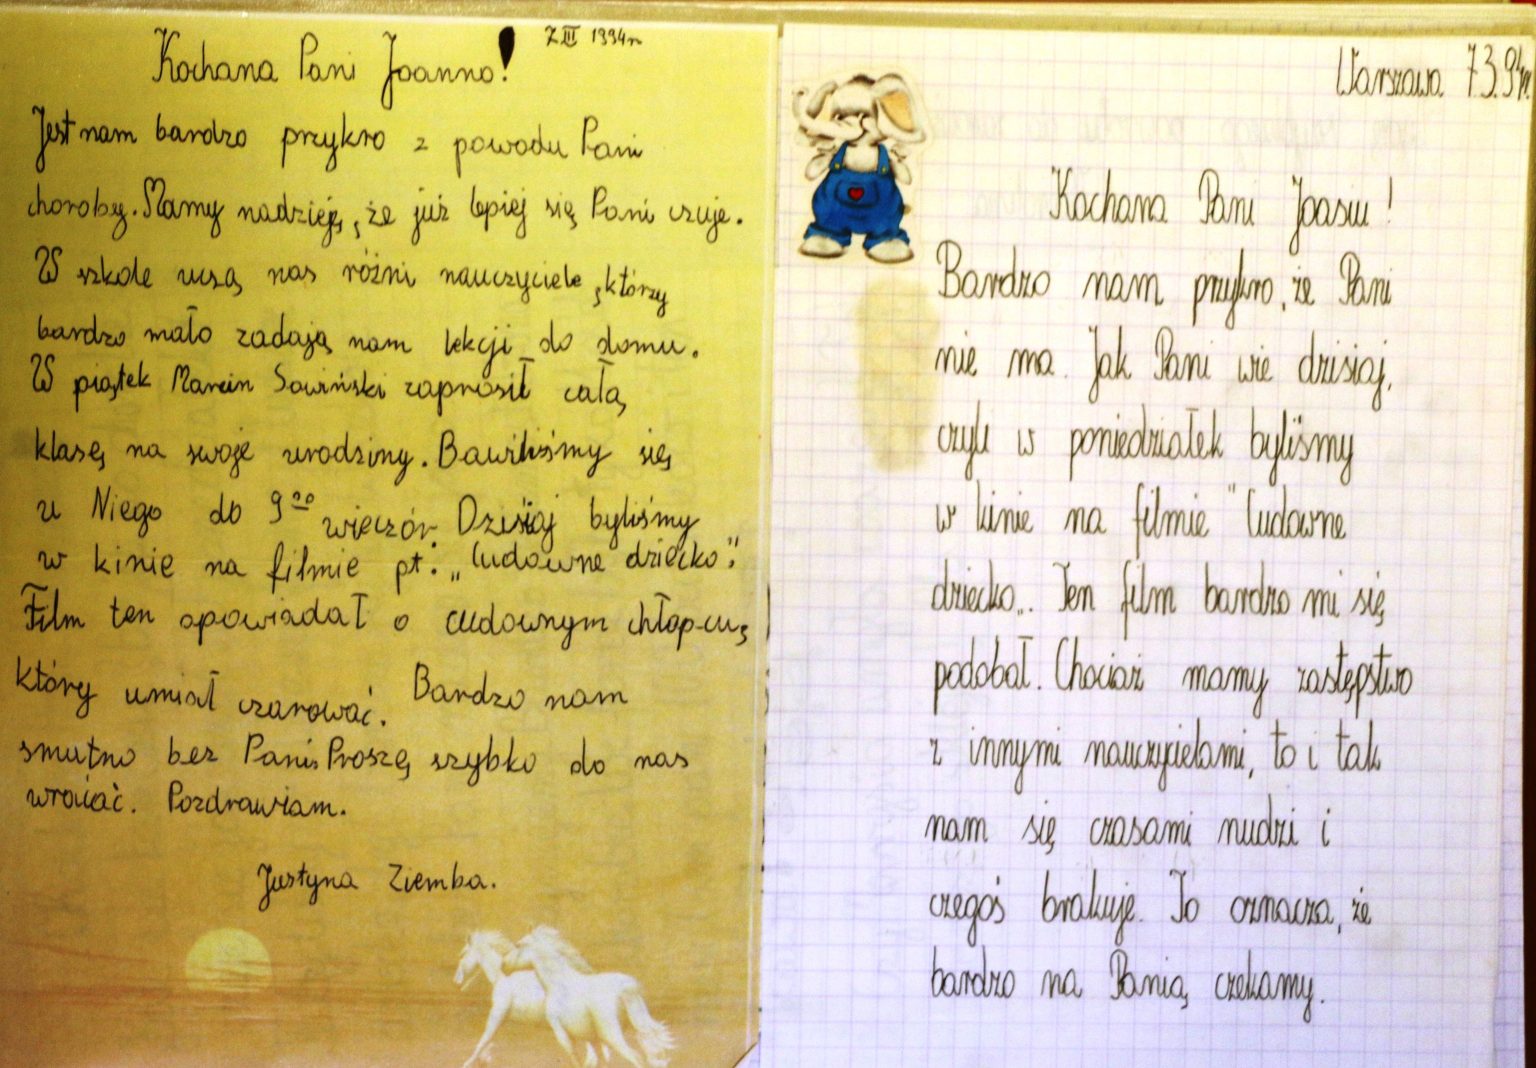 7 III 1994r
Kochana Pani Joanno!
Jest nam bardzo przykro z powodu Pani
choroby. Mamy nadzieję, że już lepiej się Pani czuje.
W szkole uczą nas różni nauczyciele, którzy
bardzo mało zadają nam lekcji do domu.
W piątek Marcin Sawiński zaprosił całą
klasę na swoje urodziny. Bawiliśmy się
u Niego do 9⁰⁰ wieczór. Dzisiaj byliśmy
w kinie na filmie pt: „Cudowne dziecko".
Film ten opowiadał o cudownym chłopcu,
który umiał czarować. Bardzo nam
smutno bez Pani. Proszę szybko do nas
wrócać. Pozdrawiam.
Justyna Ziemba.
Warszawa 7.3.94r.
Kochana Pani Joasiu!
Bardzo nam przykro, że Pani
nie ma. Jak Pani wie dzisiaj,
czyli w poniedziałek byliśmy
w kinie na filmie "Cudowne
dziecko„. Ten film bardzo mi się
podobał. Chociaż mamy zastępstwo
z innymi nauczycielami, to i tak
nam się czasami nudzi i
czegoś brakuje. To oznacza, że
bardzo na Panią czekamy.